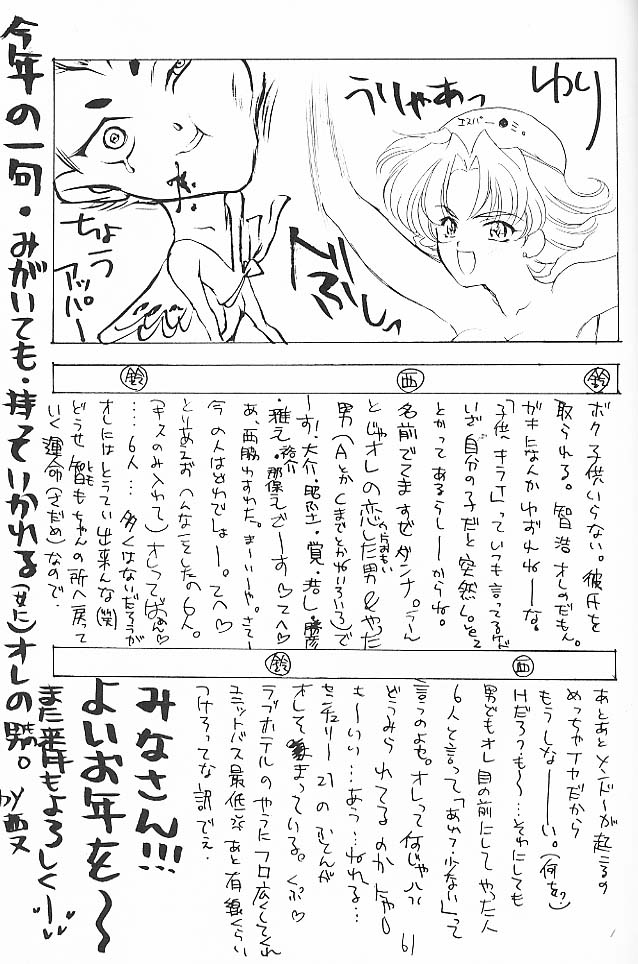 ゆり
うりゃあっ
エスパー●ミ。
でぶしっ
ちょう
アッパー
今年の一句・みがいても・持っていかれる(女に)オレの男。
鈴
西
鈴
ボク子供いらない。彼氏を
取られる。智浩オレのだもん。
ガキになんかわたすかーな。
「子供キライ」っていつも言ってるくせに
いざ自分の子だと突然し。
とかってあるらしーからね。
名前でてますぜダンナ。うーん
とじゃオレの恋した男&やった
男(AとかCまでとかねいろいろ)で
ーす!大介・昭
・雅之・裕介・那保えどーす♡てへ♡
あ、西脇わすれた。まーいーや。さてー
今の人はどれでしょー。てへ♡
とりあえず(んな)ことしたの6人。
(キスのみ入れて)オレってばぁん♡
……6人…多くはないだろうが
オレにはとうてい出来んな(笑)
どうせ智ともちゃんの所へ戻って
いく運命(さだめ)なので.
鈴
西
あとあとメンドーが起こるの
めっちゃイヤだから
もうしなーーい。(何を?)
Hだろっつも〜…それにしても
男どもオレ目の前にしてやった人
6人と言って「あれ?少ない」って
言うのよセ。オレって何じゃハハ
どうみられてるのか
もーいい…あう…ねれる…
センチュリー21のふとんが
オレして まっている。くふ♡
ラブホテルのやうにフロ広くしてくれ
ユニットバス最低なあと有線くらい
つけろってな訳でぇ.
みなさん!!!
よいお年を〜
また来年もよろしく
by